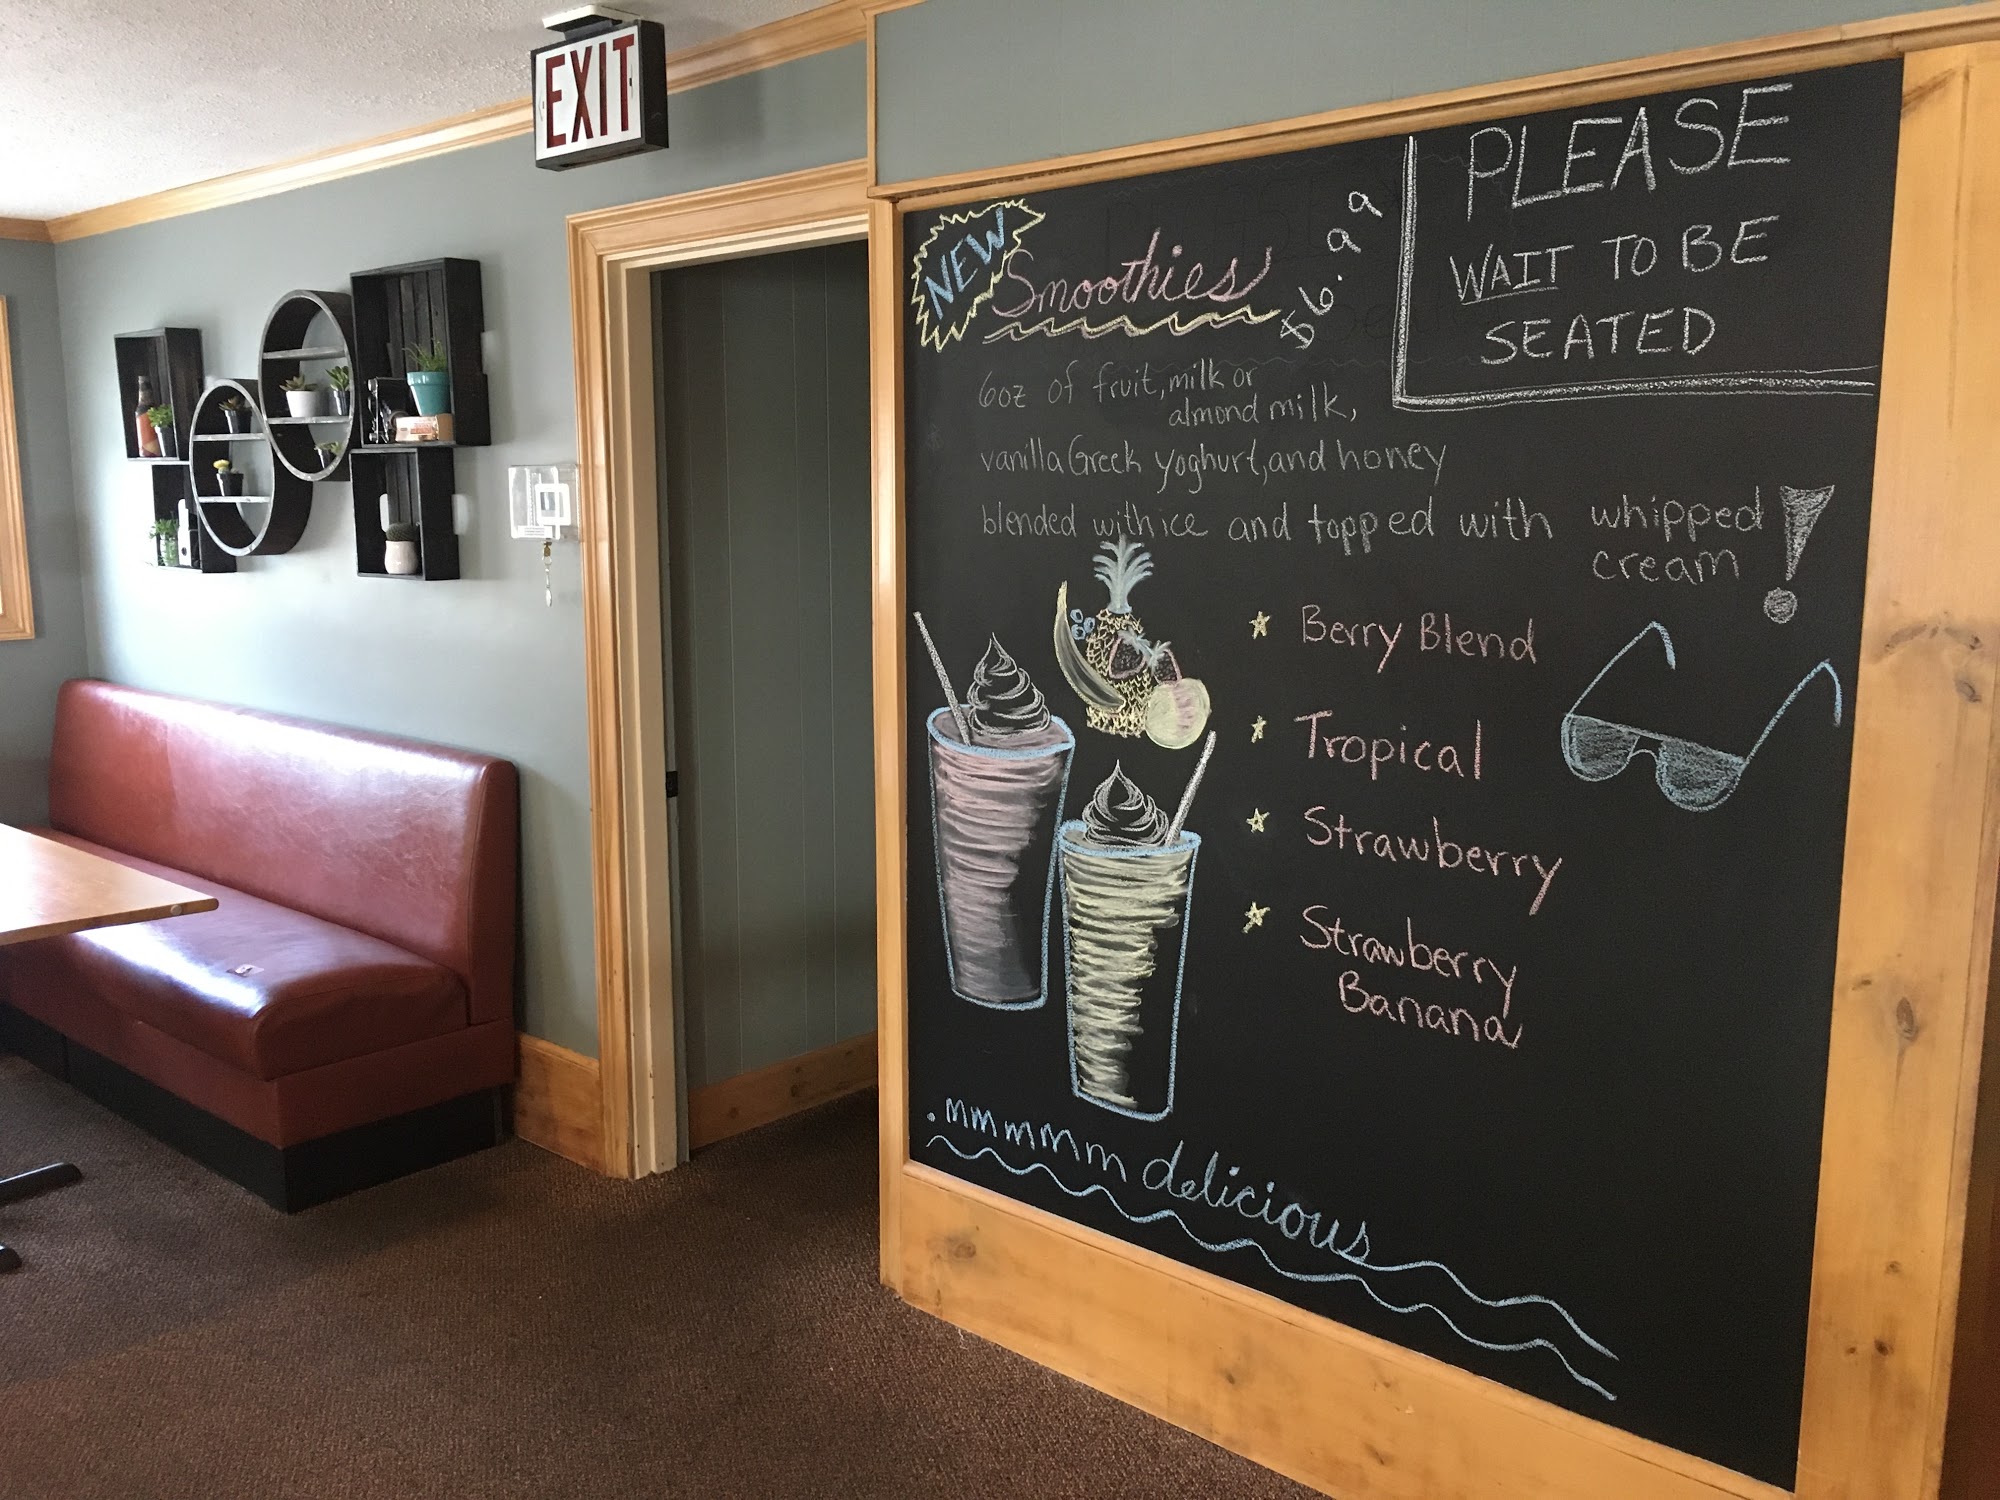 EXIT
NEW
Smoothies
$6.99
PLEASE
WAIT TO BE
SEATED
6oz of fruit, milk or
almond milk,
vanilla Greek yoghurt, and honey
blended with ice and topped with whipped
cream!
Berry Blend
Tropical
Strawberry
Strawberry
Banana
.mmmmm delicious